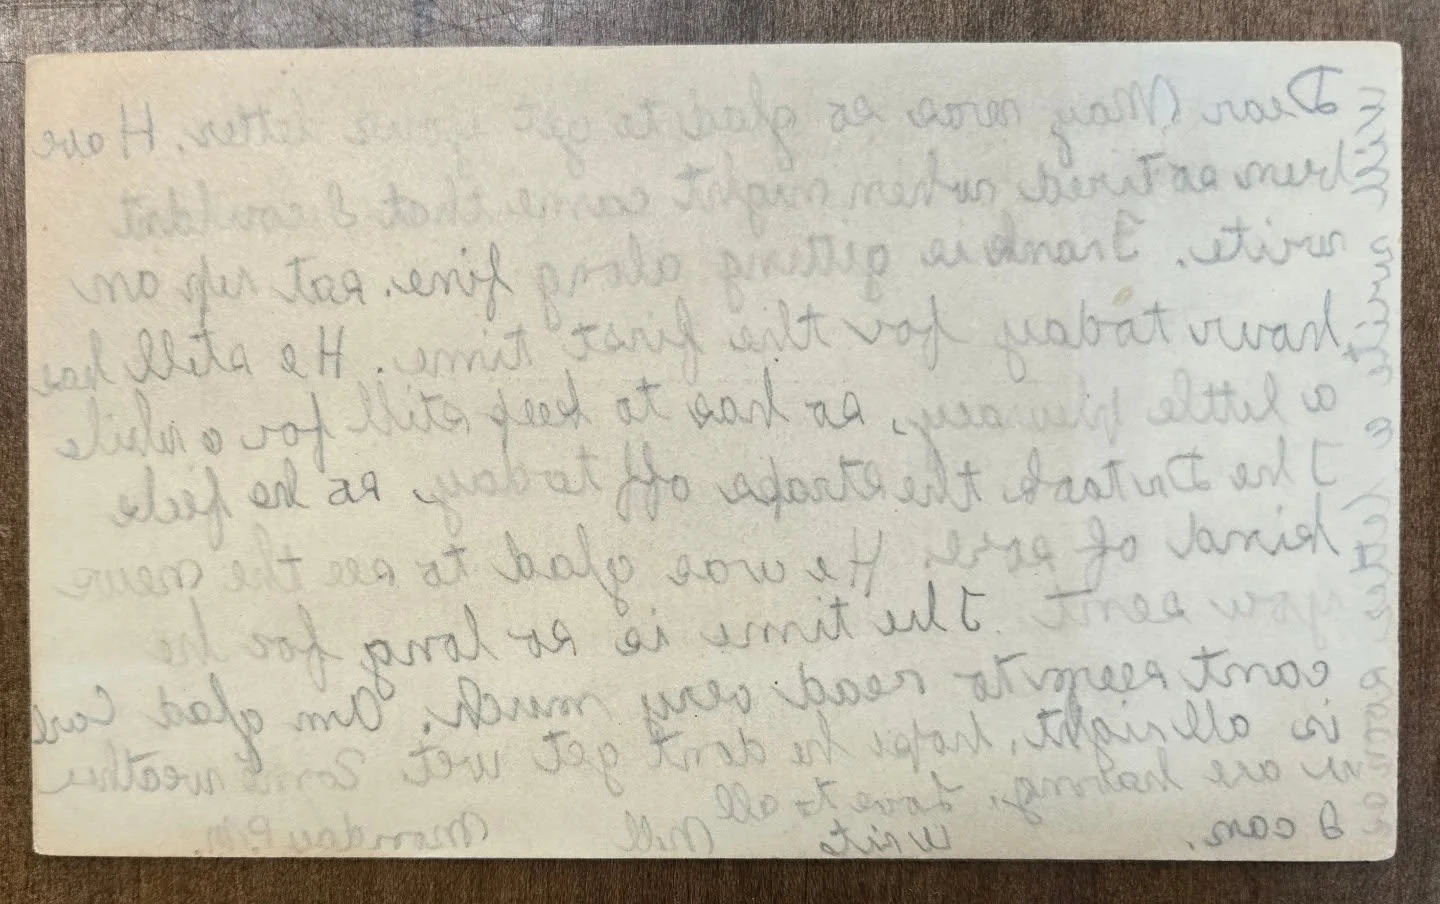 Dear May was so glad to get your letter. Have
been so tired when night came that I couldnt
write. Frank is getting along fine. sat up an
hour today for the first time. He still has
a little plurasy, so has to keep still for a while
The Dr took the straps off today, so he feels
kind of sore. He was glad to see the news
you sent. The time is so long for he
cant seem to read very much. Am glad Carl
is allright, hope he dont get wet. Some weather
we are having. Love to all
I can. write Mill Monday P.M.
Will write a letter as soon as